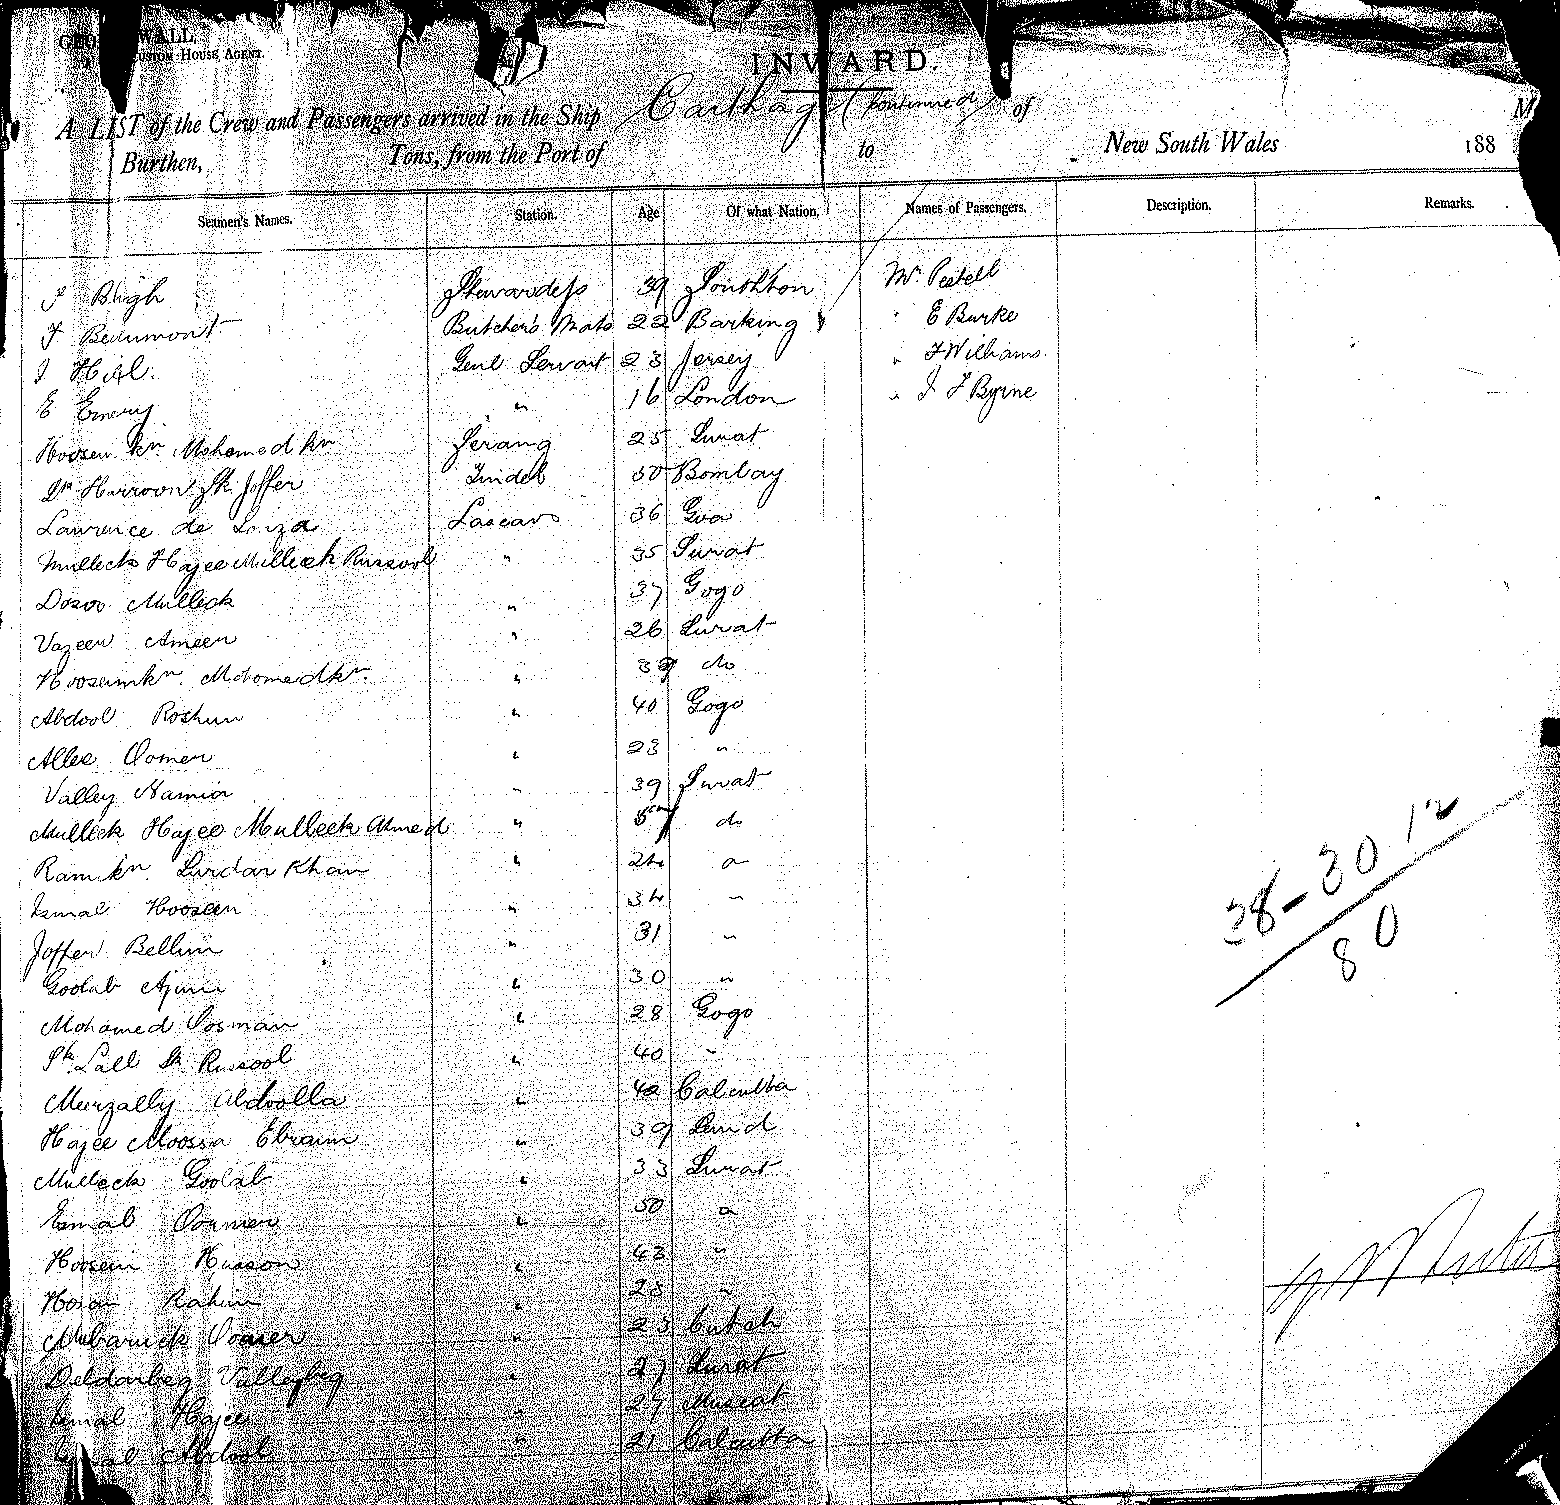 WALL
Custom House Agent.
INWARD.
A LIST of the Crew and Passengers arrived in the Ship Carthage (continued) of
Burthen, Tons, from the Port of to New South Wales 188
Seamen's Names. Station. Age Of what Nation. Names of Passengers. Description. Remarks.
Bligh Stewardess 39 Southton Mr. Pestell
F Beaumont Butcher's Mate 22 Barking " E Burke
J Hill. Genl Servant 23 Jersey " F Williams.
E Emery " 16 London " J F Byrne
Hoosen kn. Mohamed kn Serang 25 Surat
Harroon Sk Joffer Tindel 50 Bombay
Lawrence de Souza Lascar 36 Goa
Mulleck Hajee Mulleck Russool " 35 Surat
Dosoo Mulleck " 37 Gogo
Vazeer Ameer " 26 Surat
Hooseinkn. Mohomedkn. " 39 do
Abdool Roshun " 40 Gogo
Allee Oomer " 23 "
Valley Hamir " 39 Surat
Mulleck Hajee Mulleck Ahmed " do
Ramkn. Sirdar Khan " 24
Ismal Hoosein " 34 "
Joffer Bellim " 31 "
Goolab " 30 "
Mohamed Oosman " 28 Gogo
Sk Lall Sk Russool " 40 "
Meerzally Abdoolla " 42 Calcutta
Hajee Moossa Ebraim " 39
Mulleck Goolab " 33 Surat
Esmal Oomer " 50
Hoosein Hasson " 43 "
Rahim " 23 "
Mubaruck Oomer " 23 Cutch
Deldarbeg Valleybeg " 27 Surat
Ismal Hajee " 27 Muscat
Abdool " 21 Calcutta
38-30 12
80